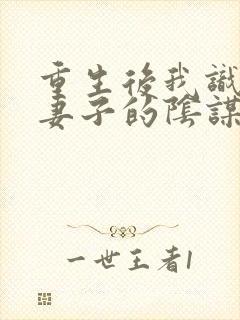 重生後我識
妻子的陰謀
一世王者1